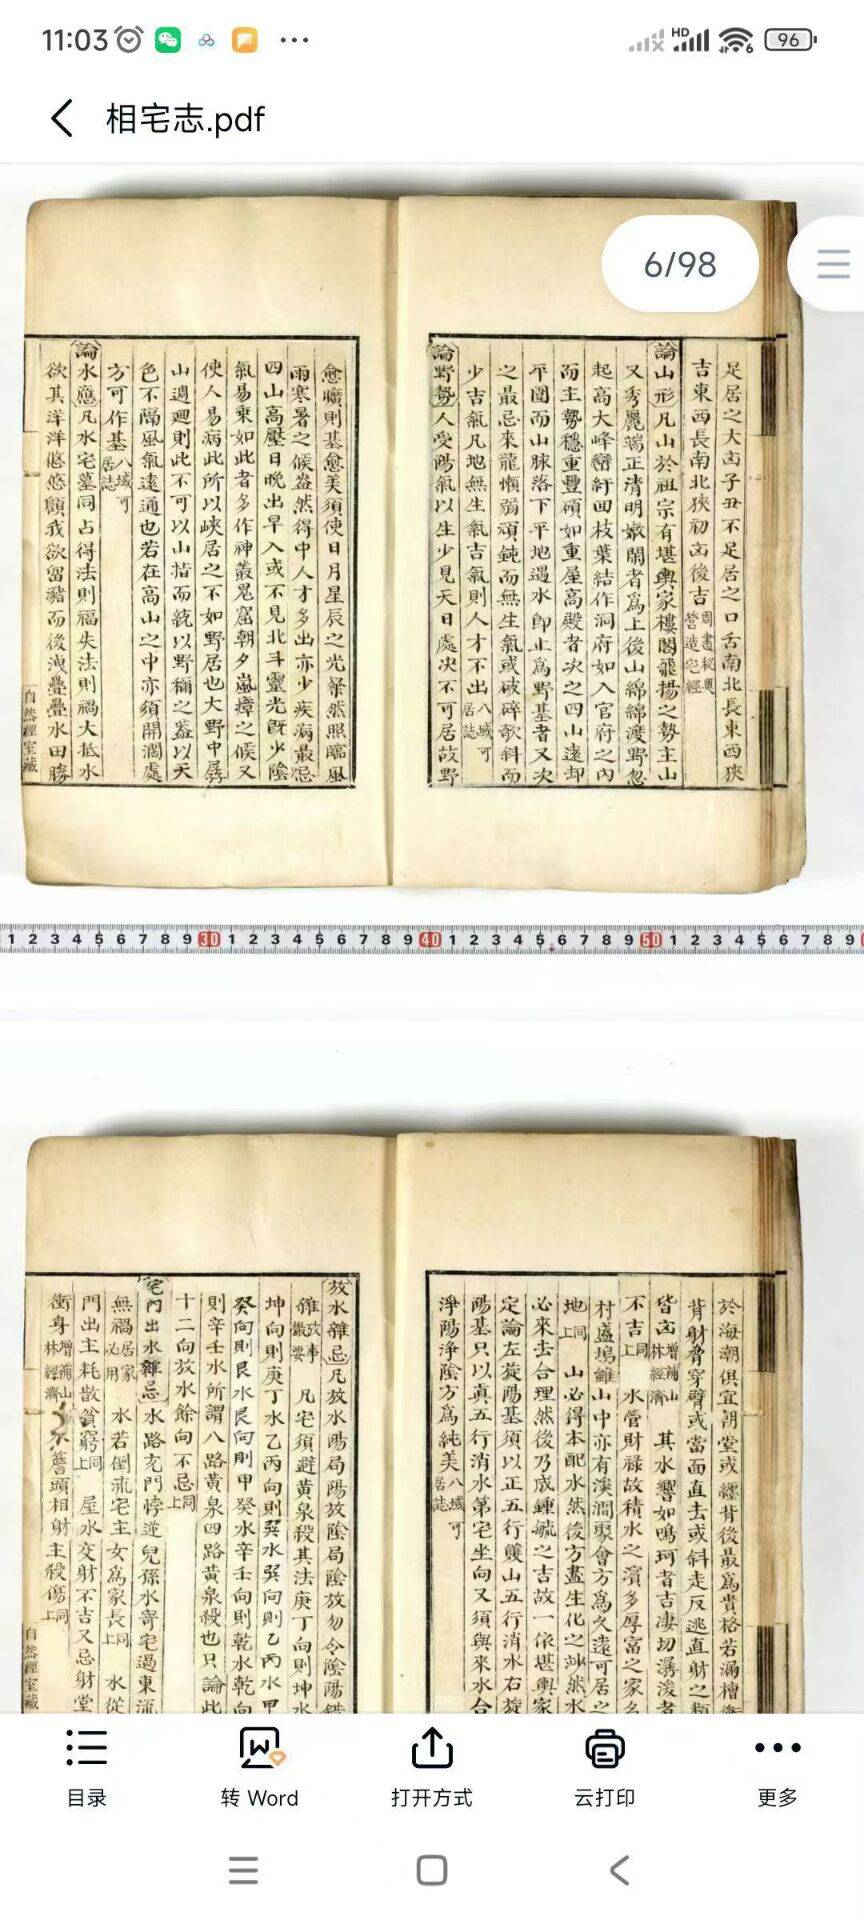 11:03
HD
6
96
相宅志.pdf
6/98
足居之大凶子丑不足居之口舌南北長東西狹
吉東西長南北狹初凶後吉周書秘奥營造宅經
論山形凡山於祖宗有堪輿家樓閣飛揚之勢主山
又秀麗端正清明嫩開者爲上後山綿綿渡野忽
起高大峰巒紆囬枝葉結作洞府如入官府之內
而主勢穩重豐碩如重屋高殿者次之四山遠却
平圍而山脉落下平地遇水卽止爲野基者又次
之最忌來龍懶弱頑鈍而無生氣或破碎欹斜而
少吉氣凡地無生氣吉氣則人才不出八域可居誌
論野勢人受陽氣以生少見天日處决不可居故野
愈曠則基愈美須使日月星辰之光粲然照臨風
雨寒暑之候盎然得中人才多出亦少疾病最忌
四山高壓日晩出早入或不見北斗靈光旣少陰
氣易乘如此者多作神叢鬼窟朝夕嵐瘴之候又
使人易病此所以峽居之不如野居也大野中孱
山遶廻則此不可以山指而統以野稱之葢以天
色不隔風氣遠通也若在高山之中亦須開濶處
方可作基八域可居誌
論水應凡水宅墓同占得法則福失法則禍大抵水
欲其洋洋悠悠顧我欲留瀦而後洩疊疊水田勝
自然經室藏
1 2 3 4 5 6 7 8 9 30 1 2 3 4 5 6 7 8 9 40 1 2 3 4 5 6 7 8 9 50 1 2 3 4 5 6 7 8 9
於海潮俱宜朝堂或纒背後最爲貴格若漏槽
背射脅穿臂或當面直去或斜走反逃直射之類
皆凶增補山林經濟 其水響如鳴珂者吉凄切潺湲者
不吉同上 水管財祿故積水之濱多厚富之家名
村盛塢雖山中亦有溪澗聚會方爲久遠可居之
地同上 山必得本配水然後方盡生化之玅然水
必來去合理然後乃成鍾毓之吉故一依堪輿家
定論左旋陽基須以正五行雙山五行消水右旋
陽基只以眞五行消水第宅坐向又須與來水合
淨陽淨陰方爲純美八域可居誌
放水雜忌凡放水陽局陽放陰局陰放勿令陰陽錯
雜攷事撮要 凡宅須避黃泉殺其法庚丁向則坤水
坤向則庚丁水乙丙向則巽水巽向則乙丙水甲
癸向則艮水艮向則甲癸水辛壬向則乾水乾向
則辛壬水所謂八路黃泉四路黃泉殺也只論此
十二向放水餘向不忌同上
宅內出水雜忌水路充門悖逆兒孫水寄宅過東流
無禍居家必用 水若倒流宅主女爲家長同上 水從
門出主耗散貧窮同上 屋水交射不吉又忌射堂
衝身增補山林經濟 水簷頭相射主殺傷同上
自然經室藏
目录
转 Word
打开方式
云打印
更多